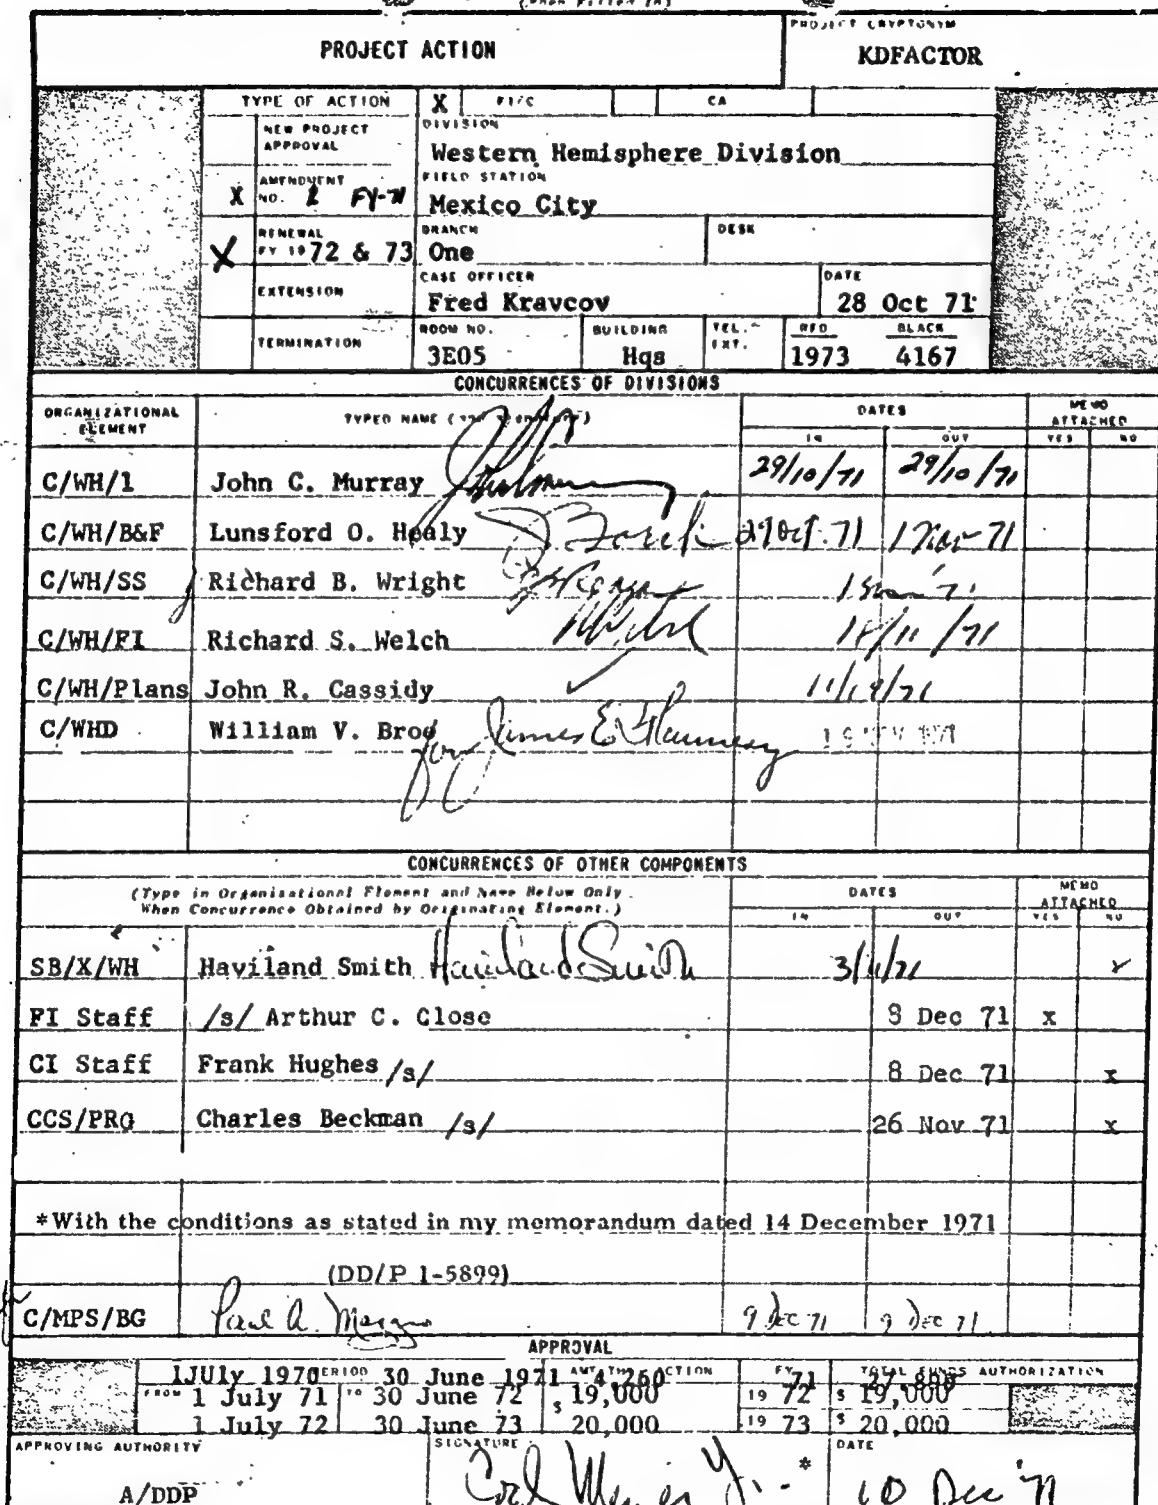 (When Filled In)
PROJECT ACTION
PROJECT CRYPTONYM
KDFACTOR
TYPE OF ACTION X FI/C CA
NEW PROJECT APPROVAL
DIVISION
Western Hemisphere Division
X AMENDMENT NO. FY-71
FIELD STATION
Mexico City
X RENEWAL FY 1972 & 73
BRANCH
One
DESK
EXTENSION
CASE OFFICER
Fred Kravcov
DATE
28 Oct 71
TERMINATION
ROOM NO.
3E05
BUILDING
Hqs
TEL. EXT.
RED
1973
BLACK
4167
CONCURRENCES OF DIVISIONS
ORGANIZATIONAL ELEMENT
TYPED NAME (and signature)
DATES
IN OUT
MEMO ATTACHED
YES NO
C/WH/1 John C. Murray 29/10/71 29/10/71
C/WH/B&F Lunsford O. Healy 29 Oct 71 1 Nov 71
C/WH/SS Richard B. Wright
C/WH/FI Richard S. Welch 18/11/71
C/WH/Plans John R. Cassidy 11/19/71
C/WHD William V. Broe for James E. Flannery 19 NOV 1971
CONCURRENCES OF OTHER COMPONENTS
(Type in Organizational Element and Name Below Only When Concurrence Obtained by Originating Element.)
DATES
IN OUT
MEMO ATTACHED
YES NO
SB/X/WH Haviland Smith Haviland Smith 3/11/71
FI Staff /s/ Arthur C. Close 8 Dec 71 x
CI Staff Frank Hughes /s/ 8 Dec 71 x
CCS/PRG Charles Beckman /s/ 26 Nov 71 x
*With the conditions as stated in my memorandum dated 14 December 1971
(DD/P 1-5899)
C/MPS/BG Paul A. 9 Dec 71 9 Dec 71
APPROVAL
PERIOD AMT. THIS ACTION FY TOTAL FUNDS AUTHORIZATION
1JUly 1970 30 June 1971 4,260 71
FROM 1 July 71 TO 30 June 72 $ 19,000 19 72 $ 19,000
1 July 72 30 June 73 20,000 19 73 $ 20,000
APPROVING AUTHORITY
A/DDP
SIGNATURE
*
DATE
10 Dec 71